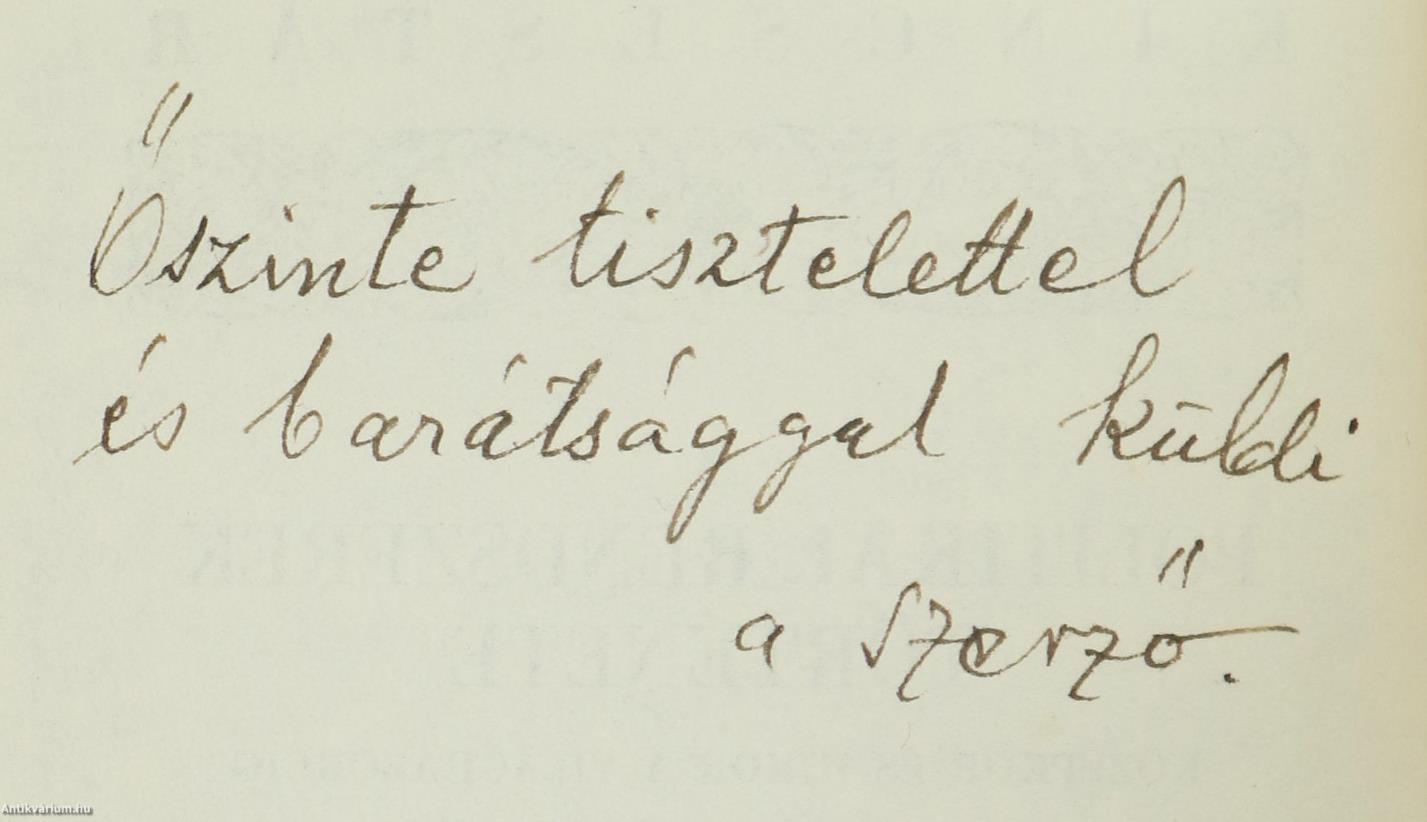 Őszinte tisztelettel
és barátsággal küldi
a szerző.
Antikvárium.hu